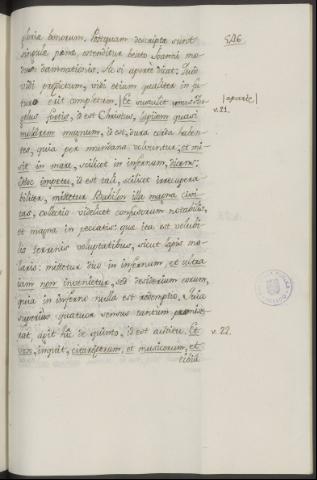 gloria bonorum. Postquam descripta sunt
singula pene, ostenditur beato Joanni mo-
dus damnationis. Ac si aperte dicat: Quod
vidi prædictum, vidi etiam qualiter in fu-
turo erit completum. Et sustulit unus An-
gelus fortis, id est Christus, lapidem quasi
molarem magnum, id est, dura corda haben-
tes, quia per mundana volvuntur, et mi-
sit in mare, scilicet in infernum, dicens:
Hoc impetu, id est tali, scilicet irrecupera-
biliter, mittetur Babilon illa magna civi-
tas, collectio videlicet confusorum notabilis,
et magna in peccatis: quæ ita est volubi-
lis terrenis voluptatibus, sicut lapis mo-
laris: mittetur dico in infernum, et ultra
iam non invenietur, ad desiderium eorum,
quia in inferno nulla est redemptio. Quia
superius quatuor sensus tantum
rat, agit hic de quinto, id est auditu. Et
vox, inquit, citharedorum, et musicorum, et
tibia
546
|aperte|
v. 21.
v. 22.